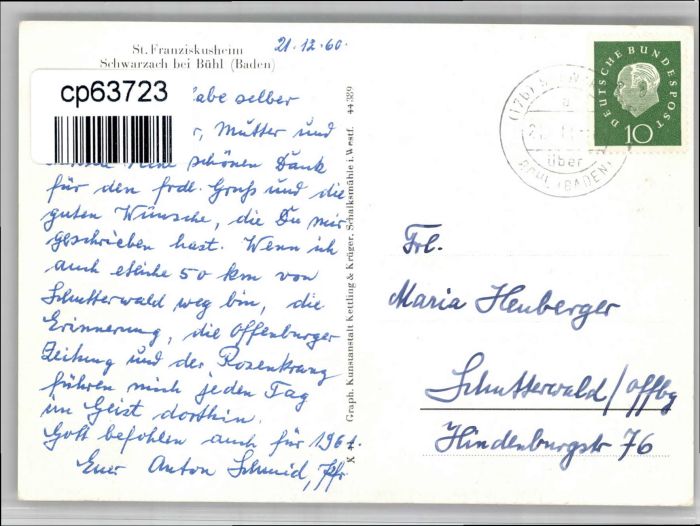 St. Franziskusheim
Schwarzach bei Bühl (Baden)
21.12.60.
cp63723
abe selber
Mutter und
schönen Dank
für den frdl. Gruß und die
guten Wünsche, die Du mir
geschrieben hast. Wenn ich
auch etliche 50 km von
Schutterwald weg bin, die
Erinnerung, die Offenburger
Zeitung und der Rosenkranz
führen mich jeden Tag
im Geist dorthin.
Gott befohlen auch für 1961.
Euer Anton Schmid, Pfr
X Graph. Kunstanstalt Kettling & Krüger, Schalksmühle i. Westf. 44389
DEUTSCHE BUNDESPOST
10
(17b)
über
BÜHL (BADEN)
Frl.
Maria Heuberger
Schutterwald/Offbg
Hindenburgstr 76